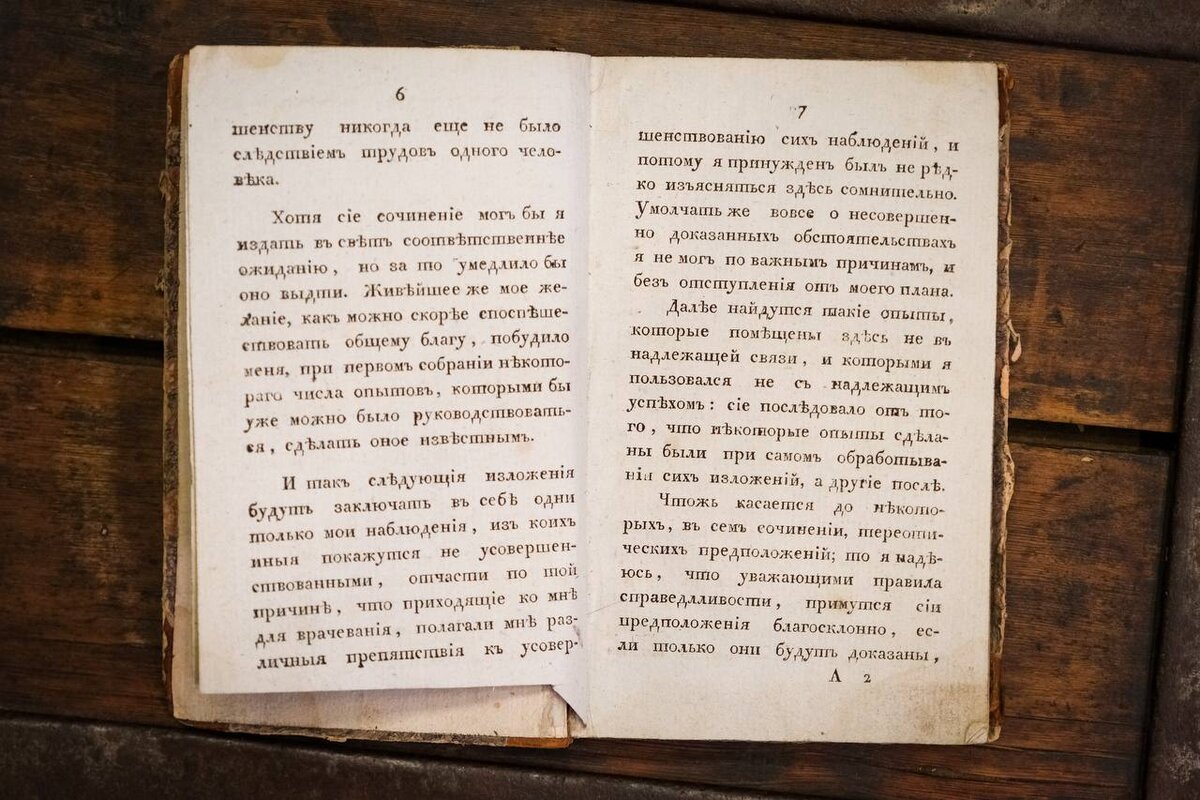 6
шенству никогда еще не было
слѣдствіемъ трудовъ одного чело-
вѣка.
Хотя сіе сочиненіе могъ бы я
издать въ свѣтъ соотвѣтственнѣе
ожиданію, но за то умедлило бы
оно выдти. Живѣйшее же мое же-
ланіе, какъ можно скорѣе споспѣше-
ствовать общему благу, побудило
меня, при первомъ собраніи нѣкото-
раго числа опытовъ, которыми бы
уже можно было руководствовать-
ся, сдѣлать оное извѣстнымъ.
И такъ слѣдующія изложенія
будутъ заключать въ себѣ одни
только мои наблюденія, изъ коихъ
иныя покажутся не усовершен-
ствованными, отчасти по той
причинѣ, что приходящіе ко мнѣ
для врачеванія, полагали мнѣ раз-
личныя препятствія къ усовер-
7
шенствованію сихъ наблюденій, и
потому я принужденъ былъ не рѣд-
ко изъясняться здѣсь сомнительно.
Умолчать же вовсе о несовершен-
но доказанныхъ обстоятельствахъ
я не могъ по важнымъ причинамъ, и
безъ отступленія отъ моего плана.
Далѣе найдутся такіе опыты,
которые помѣщены здѣсь не въ
надлежащей связи, и которыми я
пользовался не съ надлежащимъ
успѣхомъ: сіе послѣдовало отъ то-
го, что нѣкоторые опыты сдѣла-
ны были при самомъ обработыва-
ніи сихъ изложеній, а другіе послѣ.
Чтожъ касается до нѣкото-
рыхъ, въ семъ сочиненіи, тереоти-
ческихъ предположеній; то я надѣ-
юсь, что уважающими правила
справедлливости, примутся сіи
предположенія благосклонно, ес-
ли только они будутъ доказаны,
А 2